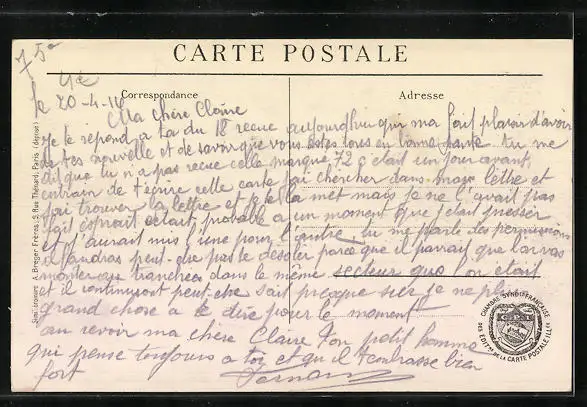 75
CARTE POSTALE
Correspondance
Adresse
le 20-4-
Ma chère Claire
Je te répond a ta du 18 recue aujourdhui qui ma fait plaisir d'avoir
de tes nouvelle et de savoir que vous êtes tous en bonne santé tu me
dit que tu n'a pas recue celle marqué 72 c etait un jour avant
entrain de t'écrire cette carte jai chercher dans mon lettre et
jai trouver la lettre et je te la met mais je ne l'avait pas
fait esprait cetait probable a un moment que jetait presser
et j'aurait mis l'une pour l'autre tu me parle des permissions
il faudras peut-être pas te desoler parce que il parrait que lon vas
monter au tranchées dans le même secteur que l'on était
et il continuront peut-être sait presque sur je ne plus
grand chose a te dire pour le moment
au revoir ma chère Claire ton petit homme
qui pense toujours a toi et qui t'embrasse bien
fort
Simili-bromure A. Breger Frères, 9, Rue Thénard, Paris (déposé)
CHAMBRE SYND. FRANÇAISE
DES EDITRS DE LA CARTE POSTALE ILLÉE